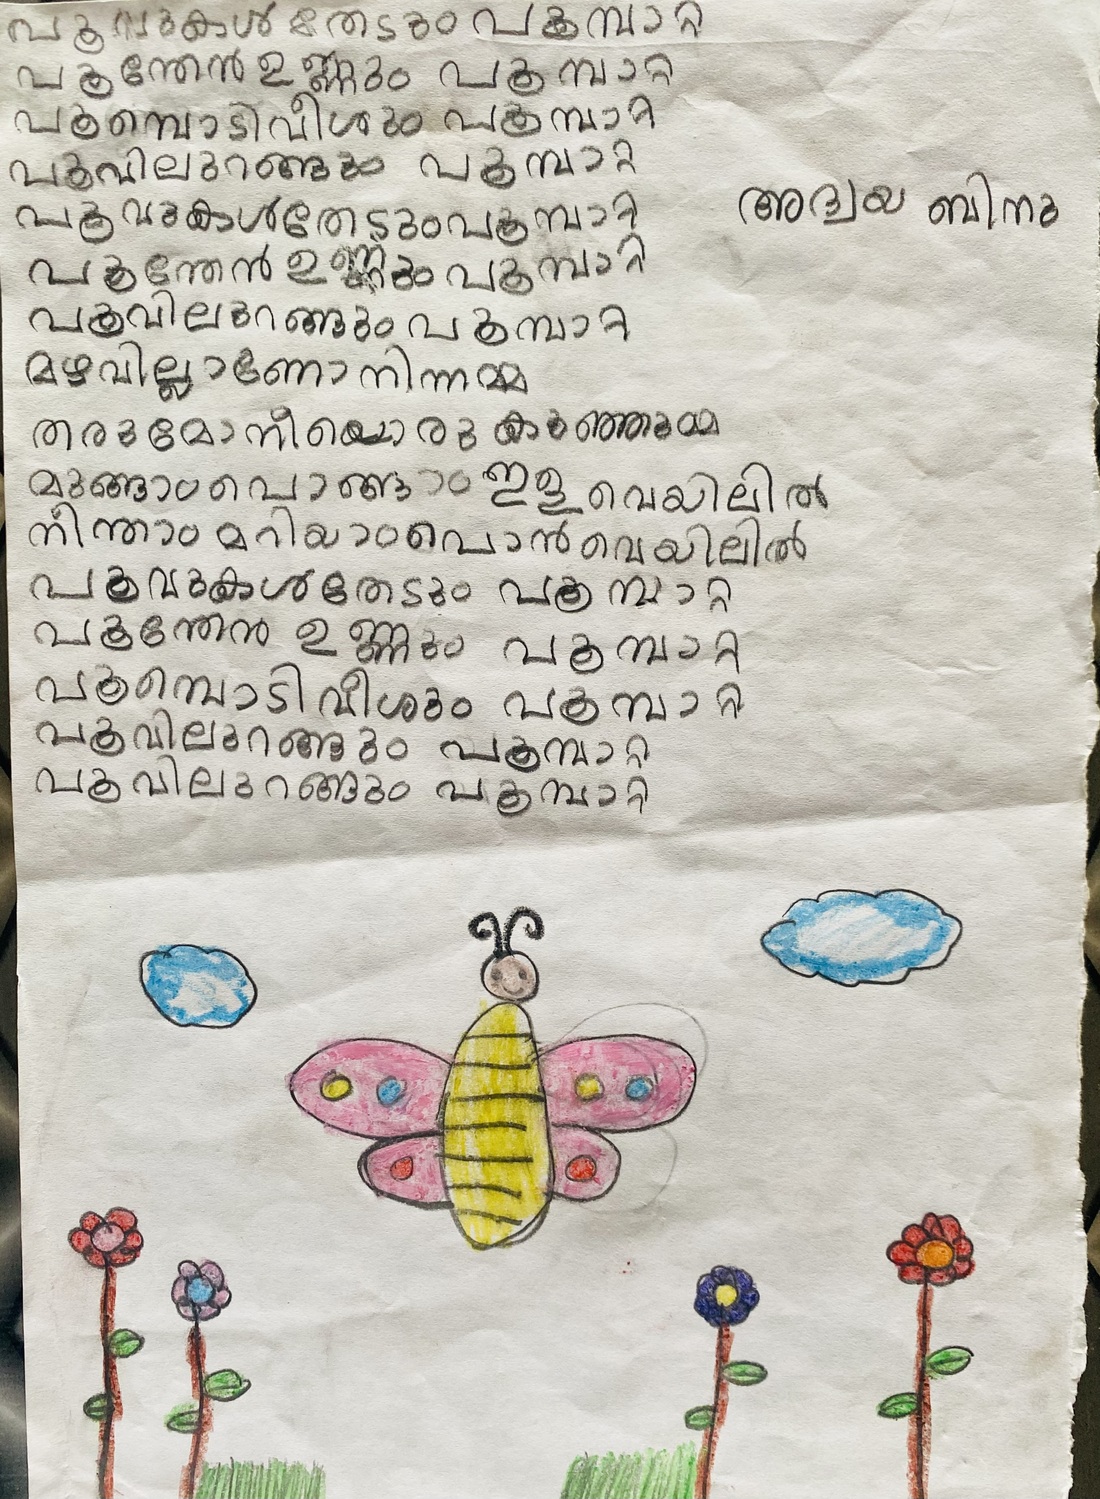 പൂവുകൾ തേടും പൂമ്പാറ്റ
പൂന്തേൻ ഉണ്ണും പൂമ്പാറ്റ
പൂമ്പൊടിവീശും പൂമ്പാറ്റ
പൂവിലുറങ്ങും പൂമ്പാറ്റ
അദ്വയ ബിനു
പൂവുകൾതേടുംപൂമ്പാറ്റ
പൂന്തേൻ ഉണ്ണുംപൂമ്പാറ്റ
പൂവിലുറങ്ങുംപൂമ്പാറ്റ
മഴവില്ലാണോനിന്നമ്മ
തരുമോനീയൊരു കുഞ്ഞുമ്മ
മുങ്ങാംപൊങ്ങാംഇളവെയിലിൽ
നീന്താംമറിയാംപൊൻവെയിലിൽ
പൂവുകൾതേടും പൂമ്പാറ്റ
പൂന്തേൻ ഉണ്ണും പൂമ്പാറ്റ
പൂമ്പൊടിവീശും പൂമ്പാറ്റ
പൂവിലുറങ്ങും പൂമ്പാറ്റ
പൂവിലുറങ്ങും പൂമ്പാറ്റ